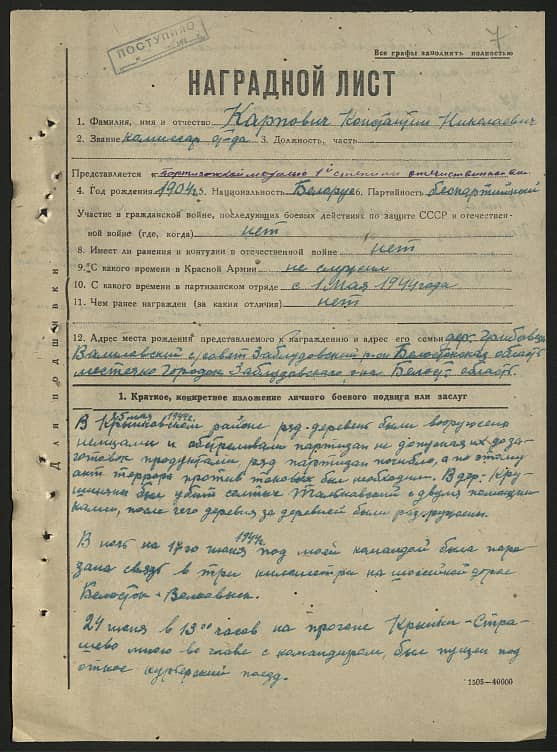 ПОСТУПИЛО
7
Все графы заполнять полностью
НАГРАДНОЙ ЛИСТ
1. Фамилия, имя и отчество Карпович Константин Николаевич
2. Звание комиссар от-да 3. Должность, часть
Представляется к партизанской медалью 1ой степени отечественной
4. Год рождения 1904г. 5. Национальность Беларус 6. Партийность беспартийный
Участие в гражданской войне, последующих боевых действиях по защите СССР и отечествен-
ной войне (где, когда) нет
8. Имеет ли ранения и контузии в отечественной войне нет
9. С какого времени в Красной Армии не служил
10. С какого времени в партизанском отряде с 1 Мая 1944 года
11. Чем ранее награжден (за какия отличия) нет
12. Адрес места рождения представляемого к награждению и адрес его семьи дер.
с/совет Заблудовский р-он Белостокская область
местечко Городок Заблудавского р-на Белост. область.
Для подшивки
1. Краткое, конкретное изложение личного боевого подвига или заслуг
5 мая 1944г.
В Крынковском районе ряд деревень были вооружены
немцами и обстреливали партизан не допуская их до за-
готовок продуктами ряд партизан погибло, а по этому
акт террора против таковых был необходим. В дер. Кру-
шиняны был убит солтыс с двумя помощни
ками, после чего деревня за деревней были разоружены.
В ночь на 17го июня 1944г. под моей командой была паре-
зана связь в три километра на шоссейной дороге
Белосток - Волковыск.
24 июня в 13 00 часов на прогоне Крынка - Стра-
шево мною во главе с командирам, был пущен под
откос курьерский поезд.
1505—40000